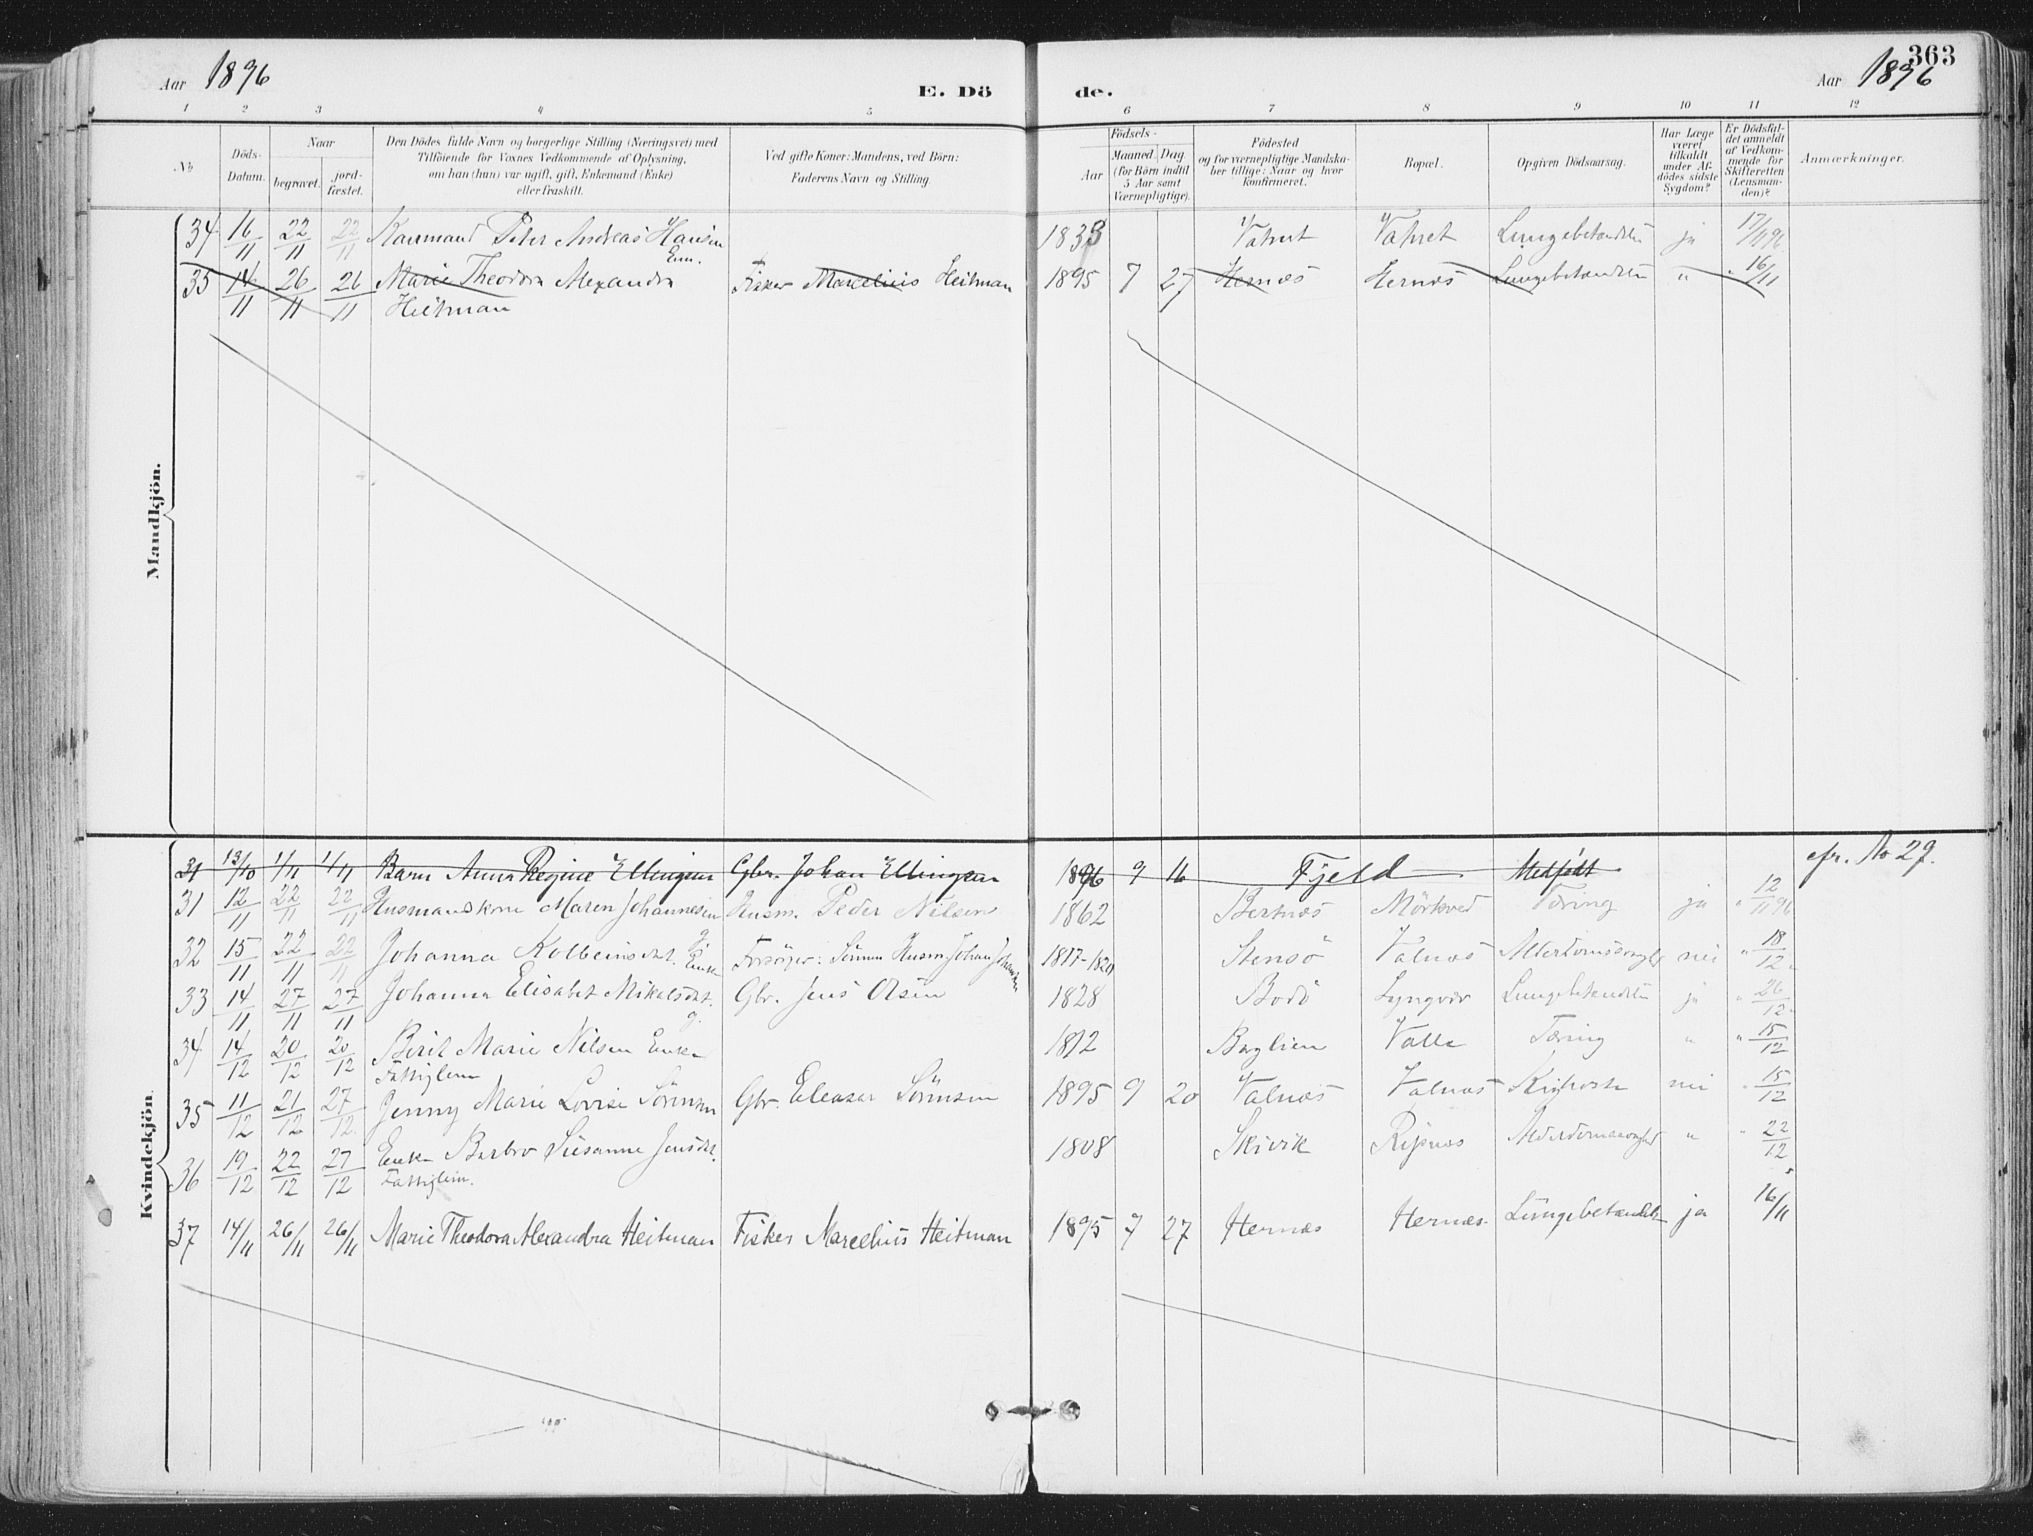 Aar 1896
E. Dö
de.
363
Aar 1896
1 2 3 4 5 6 7 8 9 10 11 12
No
Döds-Datum.
Naar
begravet.
jord-fæstet.
Den Dödes fulde Navn og borgerlige Stilling (Næringsvei) med
Tilföiende for Voxnes Vedkommende af Oplysning,
om han (hun) var ugift, gift, Enkemand (Enke)
eller fraskilt.
Ved gifte Koner: Mandens, ved Börn:
Faderens Navn og Stilling
Födsels-
Aar
Maaned. Dag
(for Börn indtil
5 Aar samt
Værnepligtige)
Födested
og for værnepligtige Mandska-
ber tillige: Naar og hvor
konfirmeret.
Bopæl.
Opgiven Dödsaarsag.
Har Læge
været
tilkaldt
under Af-
dödes sidste
Sygdom?
Er Dödsfal-
det anmeldt
af Vedkom-
mende for
Skifteretten
(Lensman-
den)?
Anmærkninger.
Mandkjön.
34 16/11 22/11 22/11 Peter Andreas Hansen 1833 Lungebetændelse ja 17/11 96
Em.
35 14/11 26/11 26/11 Marie Theodora Alexandra Fisker Marcelius Heitman 1895 7 27 Hernæs Hernæs Lungebetændelse " " 16/11
Heitman
Kvindekjön.
31 13/10 1/11 1/11 Barn Anna Regine Ellingsen Gbr. Johan Ellingsen 1896 9 16 Fjeld Medfödt cfr. No 29.
31 12/11 22/11 22/11 Husmandskone Maren Johannesen Husm. Peder Nilsen 1862 Bertnæs Mörkved Tæring ja " 12/11 96
32 15/11 22/11 22/11 Johanna Kolbeinsdat. Enke Forsörger: Sönnen Husm. Johan Johansen 1817-1820 Stensö Valnæs Alderdomssvaghed nei " 18/12
33 14/11 27/11 27/11 Johanna Elisabet Mikalsdat. g. Gbr. Jens Olsen 1828 Bodö Lyngvær Lungebetændelse ja " 26/12
34 14/12 20/12 20/12 Berit Marie Nilsen Enke 1812 Valle Tæring " " 15/12
Fattiglem
35 11/12 21/12 27/12 Jenny Marie Lovise Sörensen Gbr. Eleasar Sörensen 1895 9 20 Valnæs Valnæs Kighoste nei " 15/12
36 19/12 22/12 27/12 Enke Barbro Susanne Jensdat. 1808 Skivik Alderdomssvaghed " " 22/12
Fattiglem.
37 14/11 26/11 26/11 Marie Theodora Alexandra Heitman Fisker Marcelius Heitman 1895 7 27 Hernæs Hernæs Lungebetændelse ja 16/11